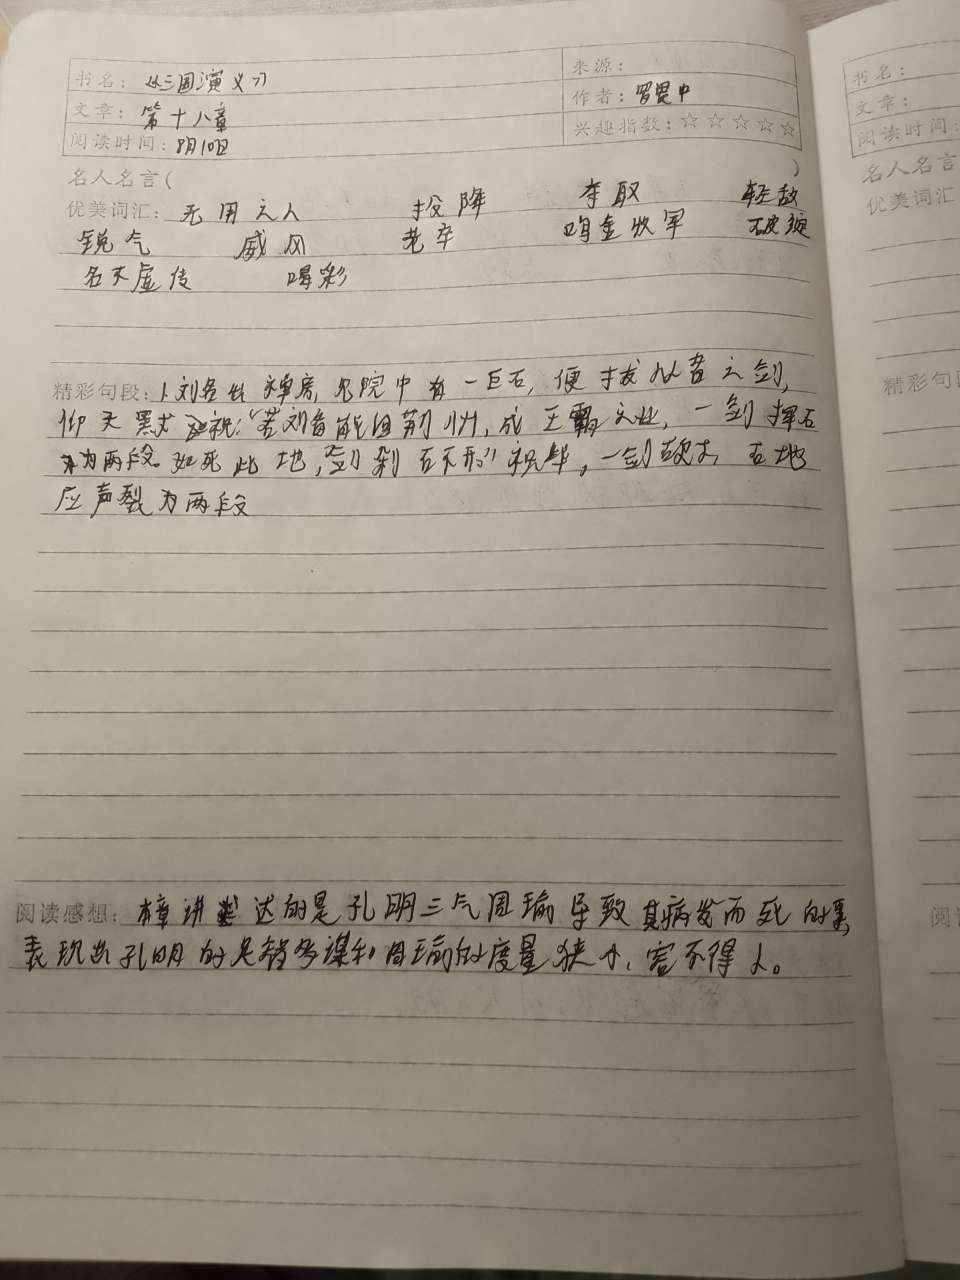 书名：《三国演义》
来源：
文章：第十八章
作者：罗贯中
阅读时间：8月10日
兴趣指数：☆☆☆☆☆
名人名言（ ）
优美词汇：无用之人 投降 夺取 轻敌
锐气 威风 老卒 鸣金收军 破绽
名不虚传 喝彩
精彩句段：1刘备出禅房，见院中有一巨石，便拔从者之剑，
仰天默 祝："若刘备能回荆州，成王霸之业，一剑挥石
为两段。如死此地，剑剁石不开"祝毕，一剑砍去 石地
应声裂为两段
阅读感想：本章讲 达的是孔明三气周瑜导致其病发而死的事，
表现出孔明的足智多谋和周瑜的度量狭小，容不得人。
书名：
文章：
阅读时间：
名人名言
优美词汇
精彩句
阅